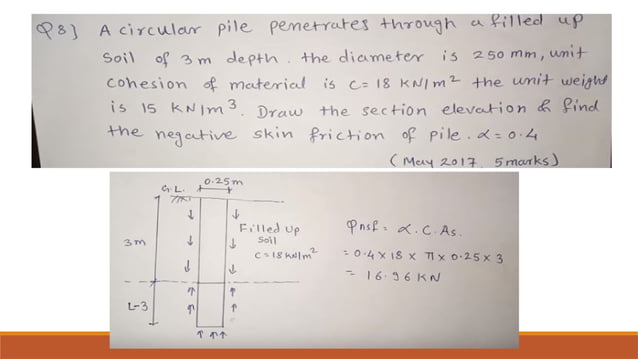 Q8] A circular pile penetrates through a filled up
soil of 3 m depth. the diameter is 250 mm, unit
cohesion of material is C= 18 KN/m2 the unit weight
is 15 KN/m3. Draw the section elevation & find
the negative skin friction of pile. α=0.4
(May 2017, 5marks)
0.25m
G.L.
Filled Up
soil
C=18kN/m2
3m
L-3
Qnsf = α.C.As.
= 0.4 x 18 x π x 0.25 x 3
= 16.96 KN